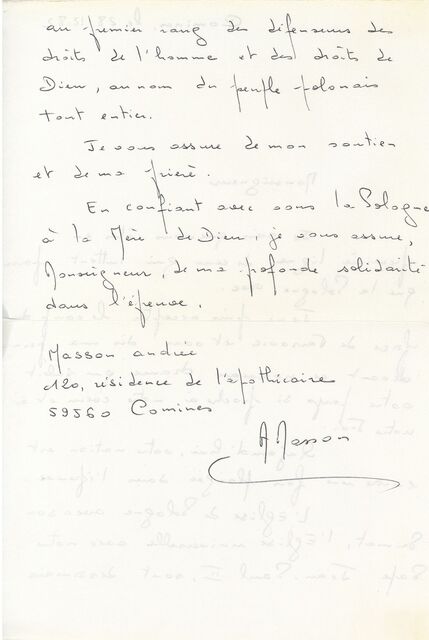 au premier rang des défenseurs des
droits de l'homme et des droits de
Dieu, au nom du peuple polonais
tout entier.
Je vous assure de mon soutien
et de ma prière.
En confiant avec vous la Pologne
à la Mère de Dieu, je vous assure,
Monseigneur, de ma profonde solidarité
dans l'épreuve.
Masson andrée
120, résidence de l'apothicaire
59560 Comines
A Masson